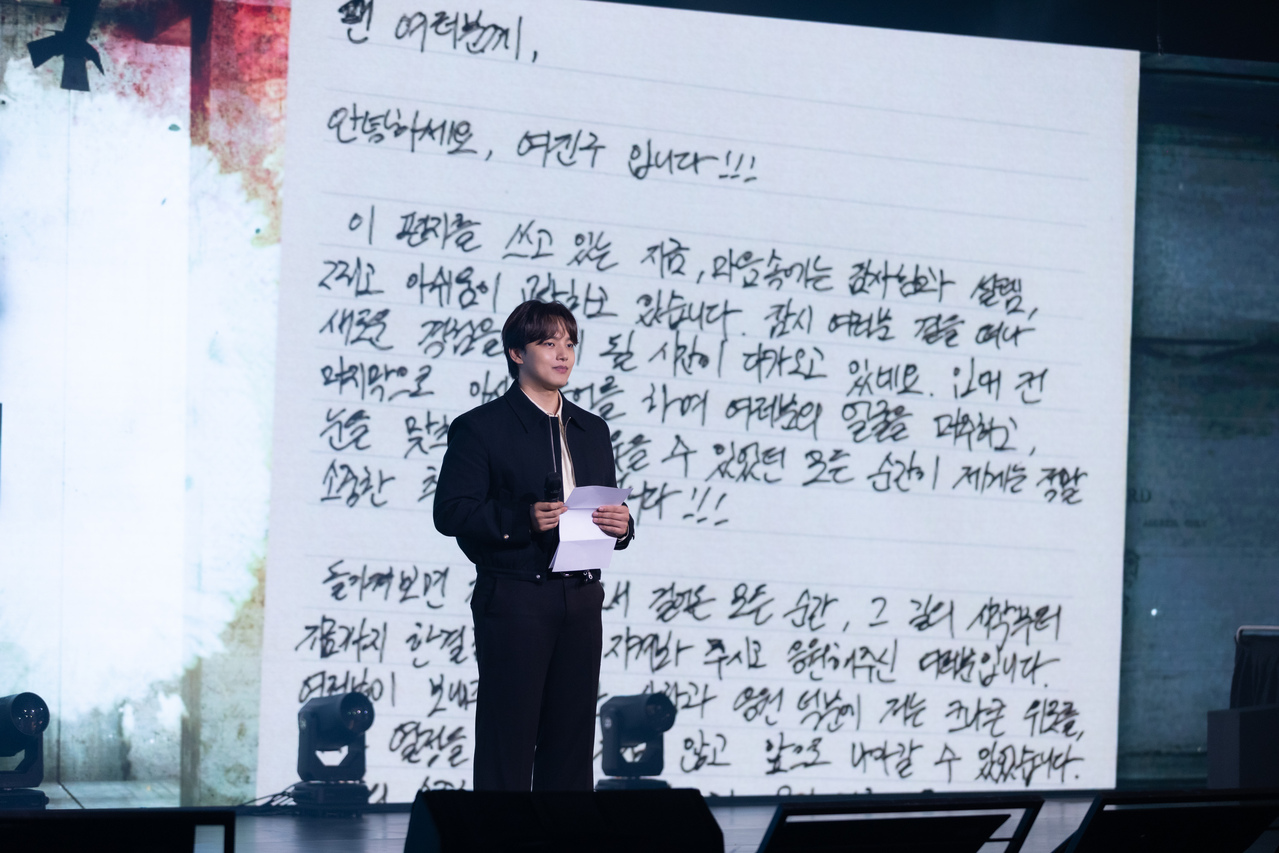 팬 여러분께,
안녕하세요, 여진구 입니다!!!
이 편지를 쓰고 있는 지금, 마음속에는 감사함과 설렘,
그리고 아쉬움이 있습니다. 잠시 여러분 곁을 떠나
새로운 경험을 될 시간이 다가오고 있네요. 입대 전
마지막으로 하며 여러분의 얼굴을 마주하고,
눈을 수 있었던 모든 순간이 제게는 정말
소중한 니다!!!
돌이켜보면 걸어온 모든 순간, 그 길의 시작부터
지금까지 한결 지켜봐 주시고 응원해주신 여러분입니다.
여러분이 사랑과 응원 덕분에 저는 크나큰 위로를,
열정을 않고 앞으로 나아갈 수 있었습니다.